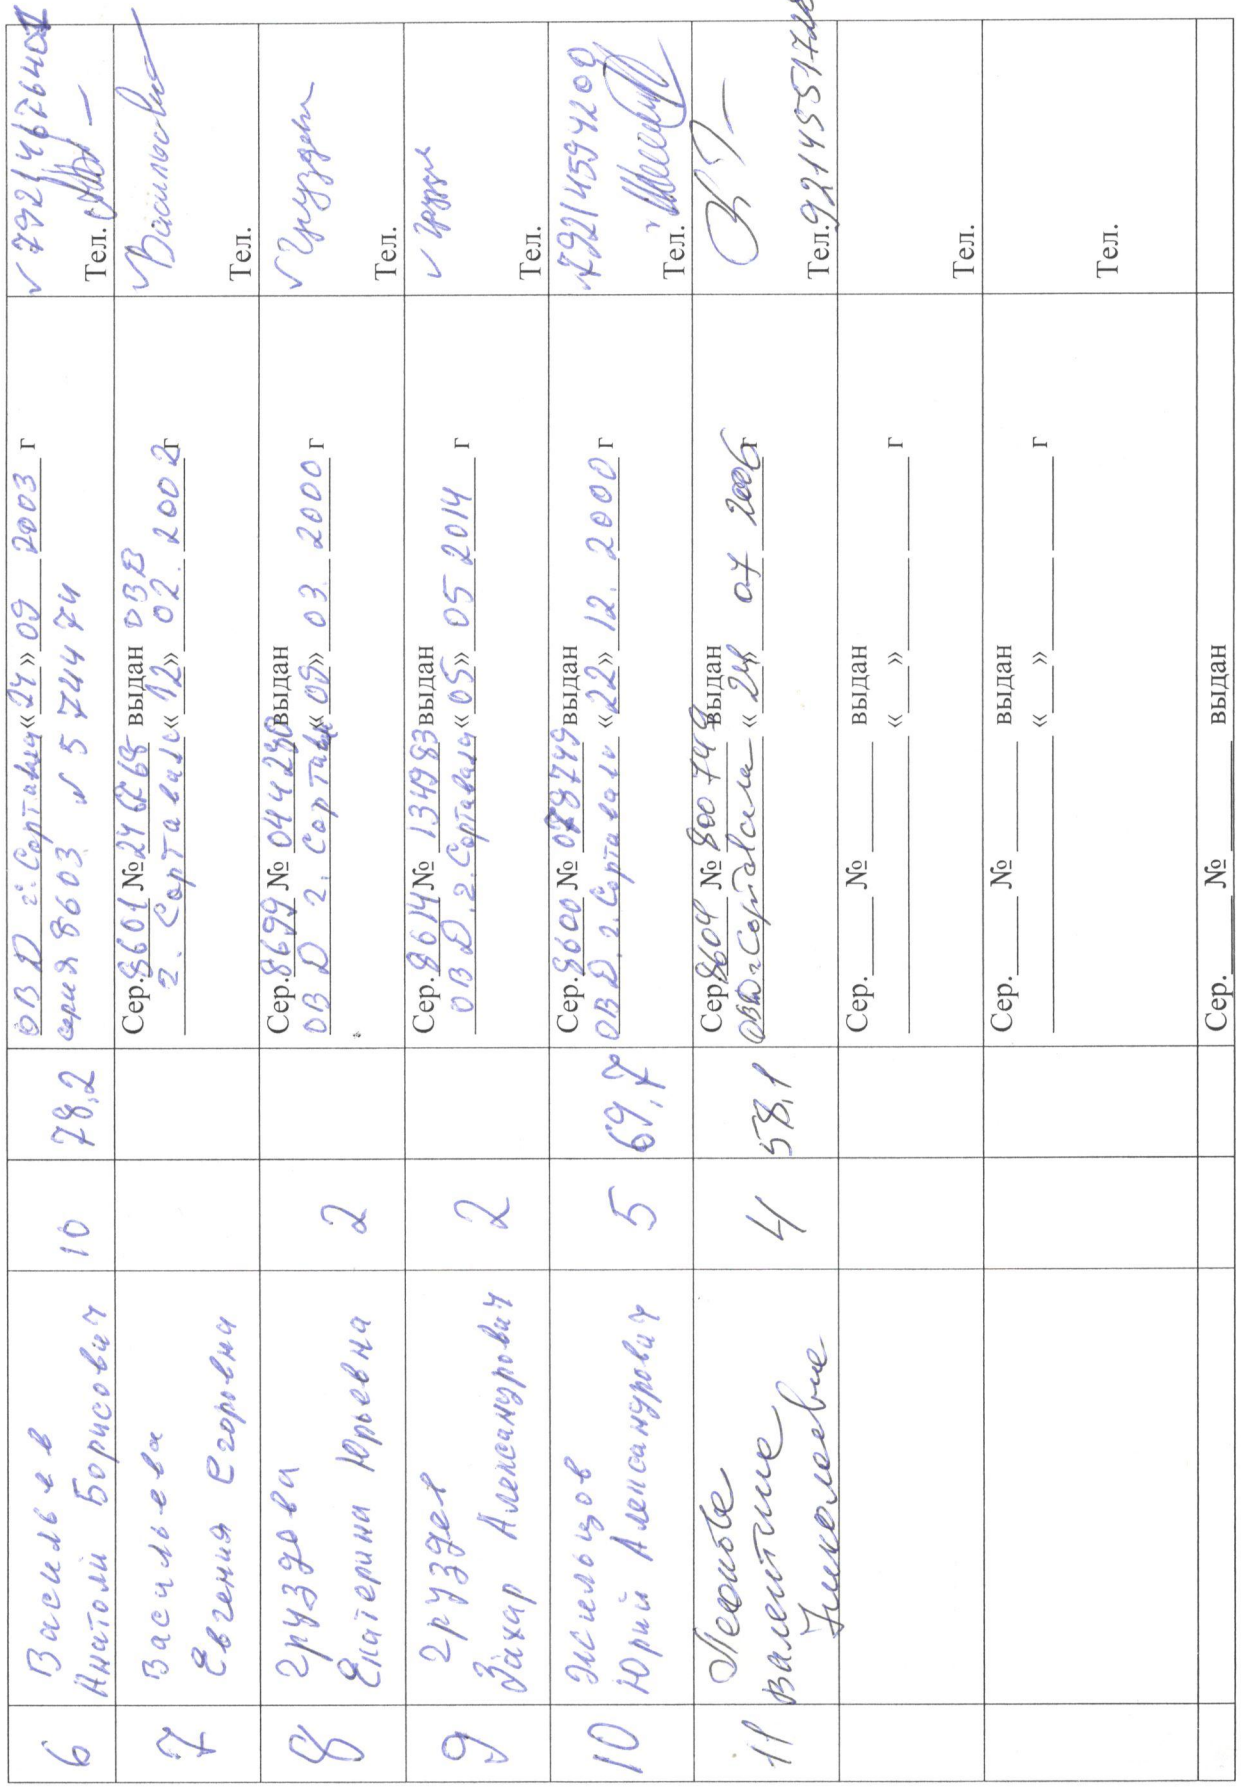 6
Васильев
Анатоли Борисович
10
78,2
ОВД г. Сортавала «24» 09 2003 г
серия 8603 № 574474
Тел.
7
Васильева
Евгения Егоровна
Сер. 8601 № выдан ОВД
г. Сортавала «12» 02. 2002 г
Васильева
Тел.
8
Груздева
Екатерина Юрьевна
2
Сер. 8699 № 044290 выдан
ОВД г. Сортавала «09» 03. 2000 г
Тел.
9
Груздев
Захар Александрович
2
Сер. 8614 № 134983 выдан
ОВД. г. Сортавала «05» 05 2014 г
Тел.
10
Жильцов
Юрий Александрович
5
69,7
Сер. 8600 № выдан
ОВД г. Сортавала «22» 12. 2000 г
+79214594200
Тел.
11
Валентина
Николаевна
4
58,1
Сер 8604 № 800749 выдан
ОВД г Сортавала «24» 07 2006 г
Тел.
Сер. № выдан
« » г
Тел.
Сер. № выдан
« » г
Тел.
Сер. № выдан